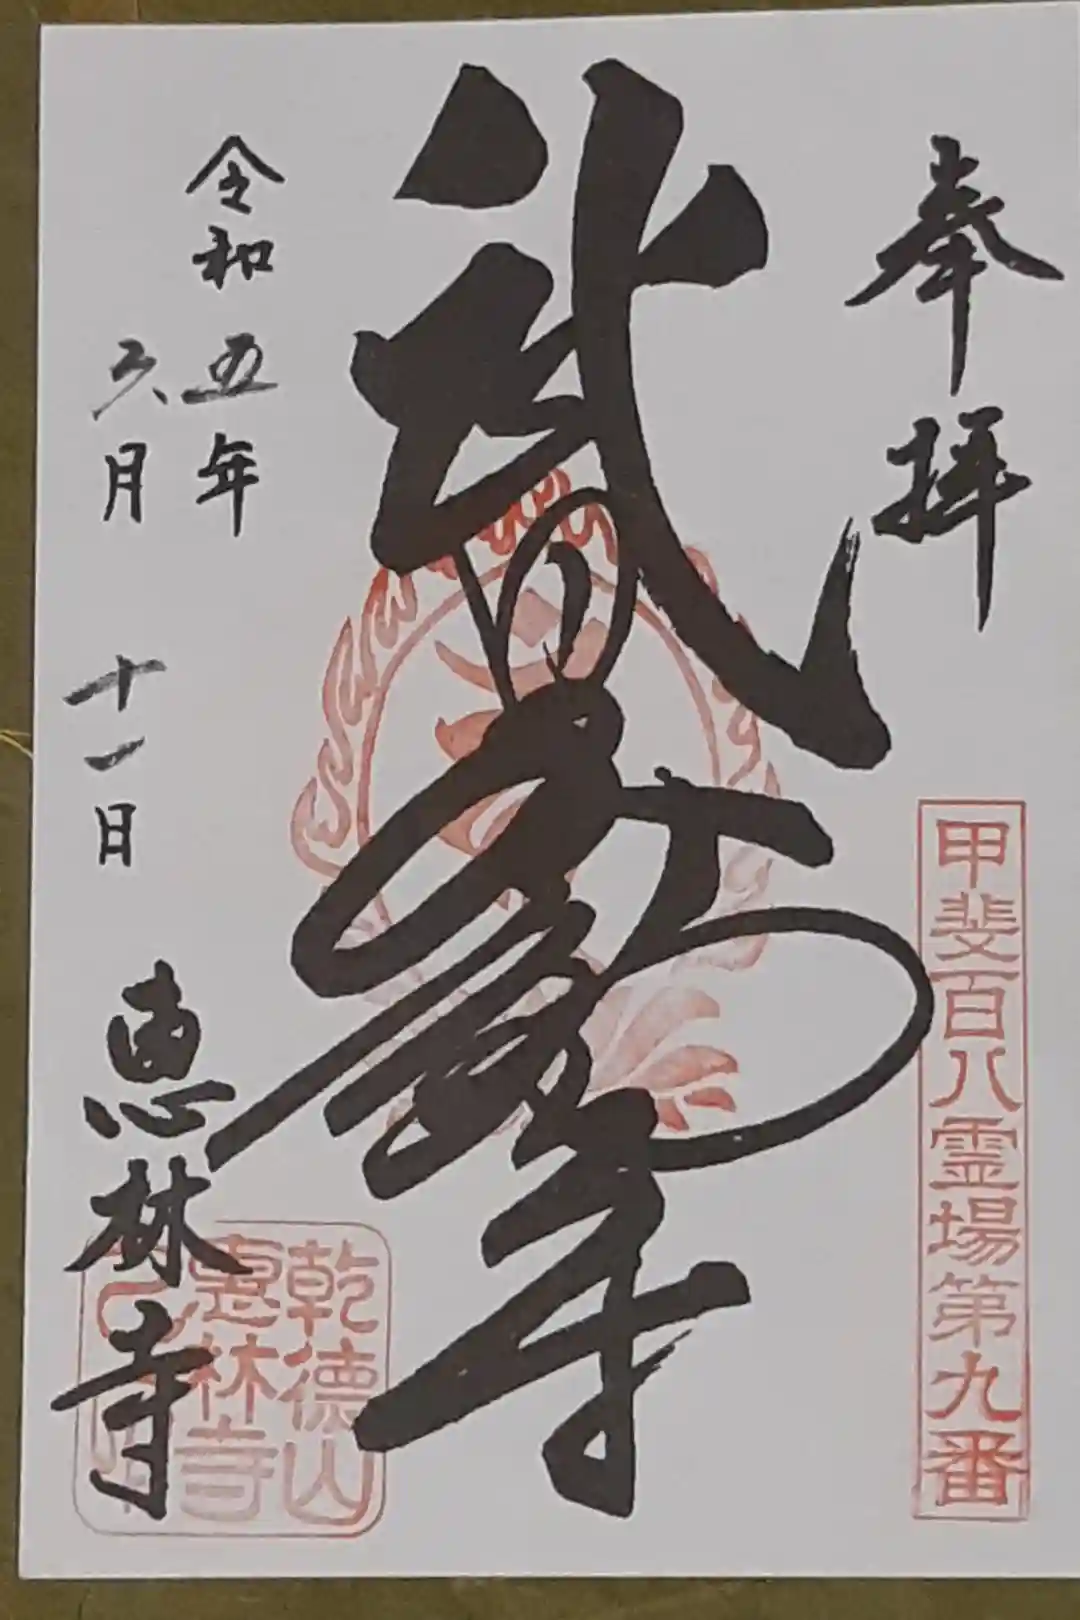 奉拝
甲斐百八霊場第九番
武田不動尊
令和五年
六月十一日
恵林寺
乾徳山
恵林寺